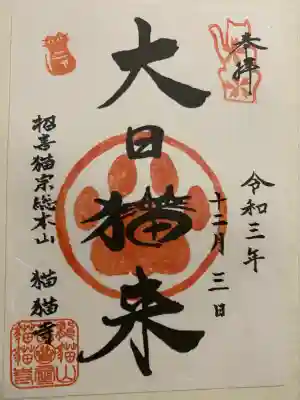 奉拝
令和三年
十二月三日
大日猫来
招喜猫宗総本山 猫猫寺